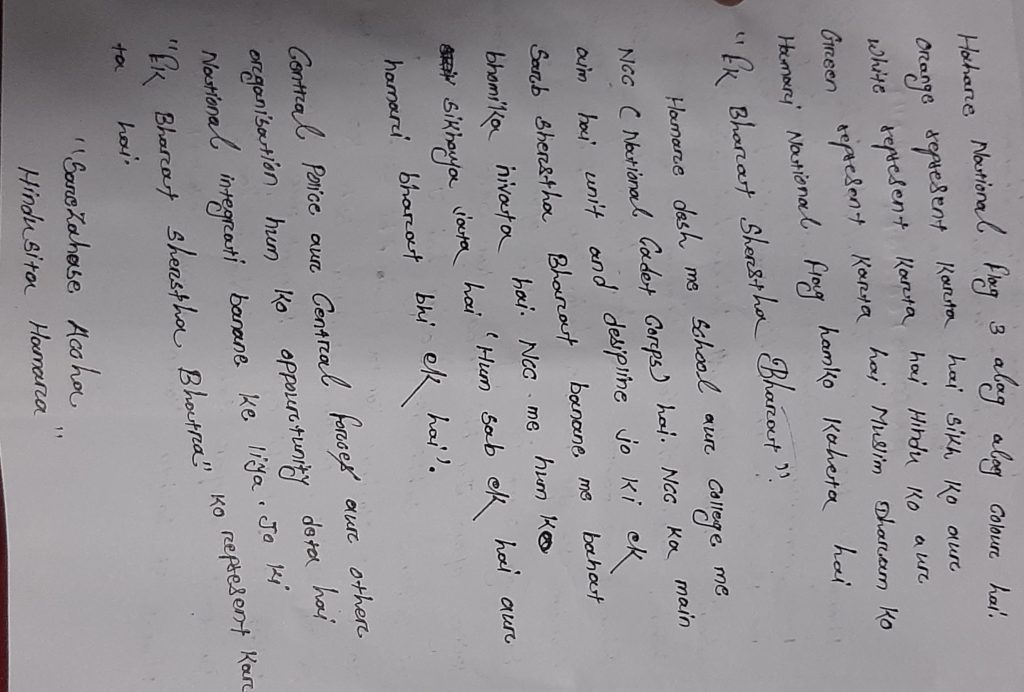 Hamare National flag 3 alag alag colour hai.
orange represent karta hai Sikh ko aur
white represent karta hai Hindu ko aur
Green represent karta hai Muslim Dharam ko
Hamari National flag hamko kaheta hai
"Ek Bharat Sherstha Bharat".
Hamare desh me school aur college me
NCC (National Cadet Corps) hai. Ncc ka main
aim hai unit and desipline jo ki ek
Sarb sherstha Bharat banane me bahat
bhomika nivata hai. Ncc me hum ko
sikhaya jata hai "Hum sab ek hai aur
hamari bharat bhi ek hai".
Central Police aur Central forces aur other
organisation hum ko oppurtunity deta hai
National integrati banane ke liya. Jo ki
"Ek Bharat Sherstha Bhatra" ko represent kar
ta hai
"Sare Zahase Accha"
Hindusita Hamara